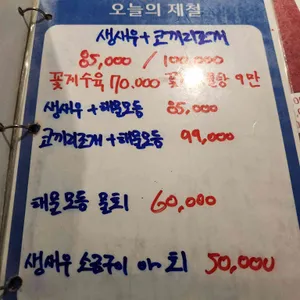 오늘의 제철
생새우+코끼리조개
85,000 / 100,000
꽃게수육 70.000 꽃 탕 9만
생새우 +해물모둠 85,000
코끼리조개 +해물모둠 99,000
해물모둠 물회 60,000
생새우 소금구이 or 회 50,000